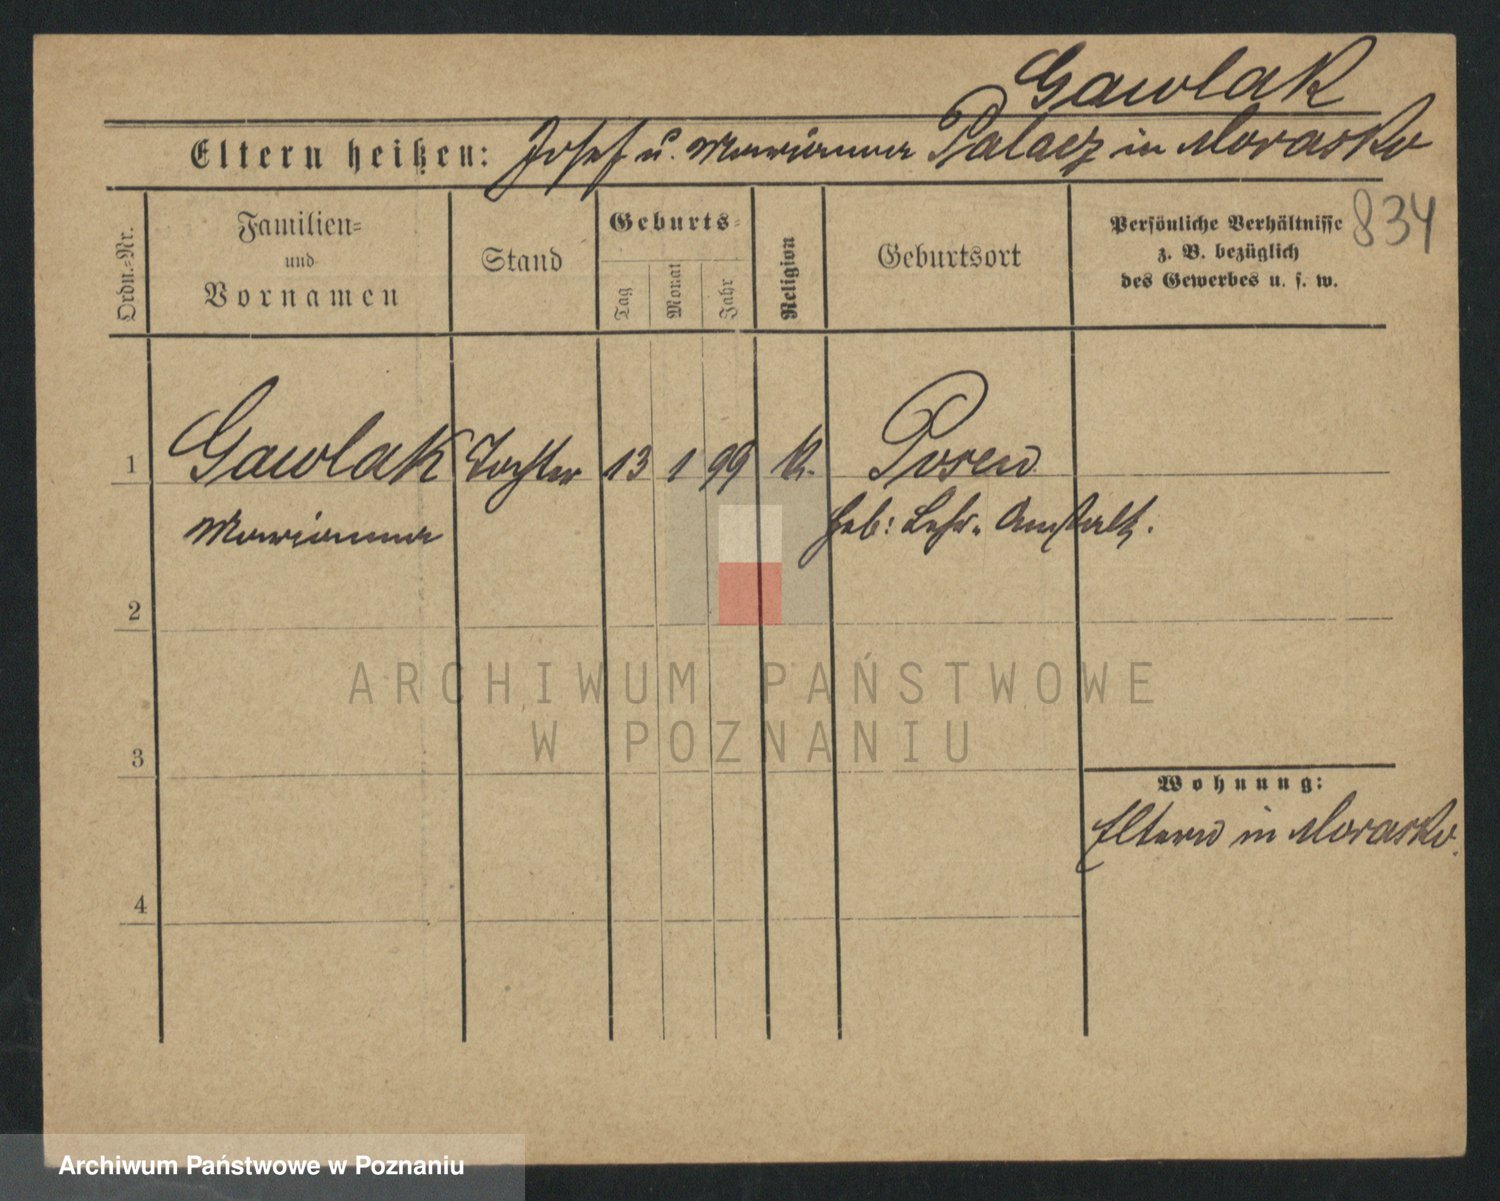 Gawlak
Eltern heißen: Josef u. Marianna Palacz in Morasko
834
Ordn.=Nr.
Familien=
und
Vornamen
Stand
Geburts=
Tag
Monat
Jahr
Religion
Geburtsort
Persönliche Verhältnisse
z. B. bezüglich
des Gewerbes u. s. w.
1 Gawlak Tochter 13 1 99 k. Posen
Marianna Heb: Lehr-Anstalt.
2
ARCHIWUM PAŃSTWOWE
W POZNANIU
3
Wohnung:
Eltern in Morasko.
4
Archiwum Państwowe w Poznaniu